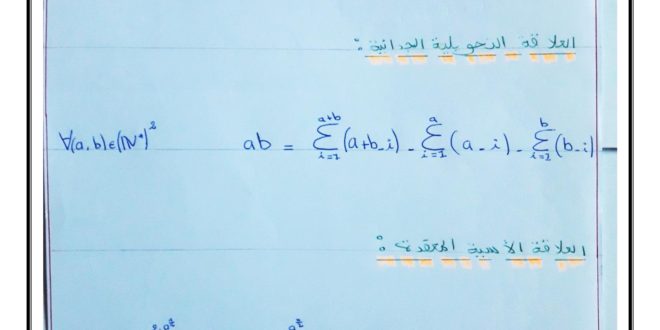 العلاقة التحويلية الجدائية :
∀(a,b)∈(ℕ*)² ab = Σ_{i=1}^{a+b}(a+b-i) - Σ_{i=1}^{a}(a-i) - Σ_{i=1}^{b}(b-i)
العلاقة الأسية المعقدة :